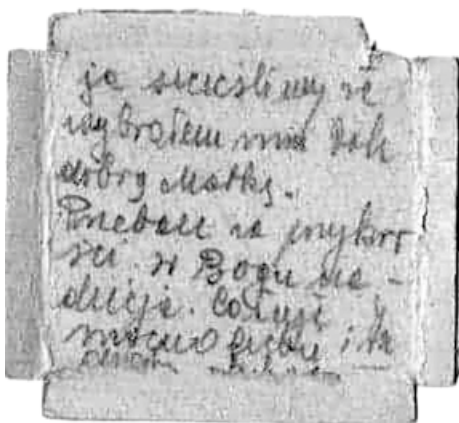 ja szczęśliwy że
wybrałem im tak
dobrą Matkę.
Przebacz za przykro
ści. w Bogu na -
dzieja. Całuję
mocno Ciebie i